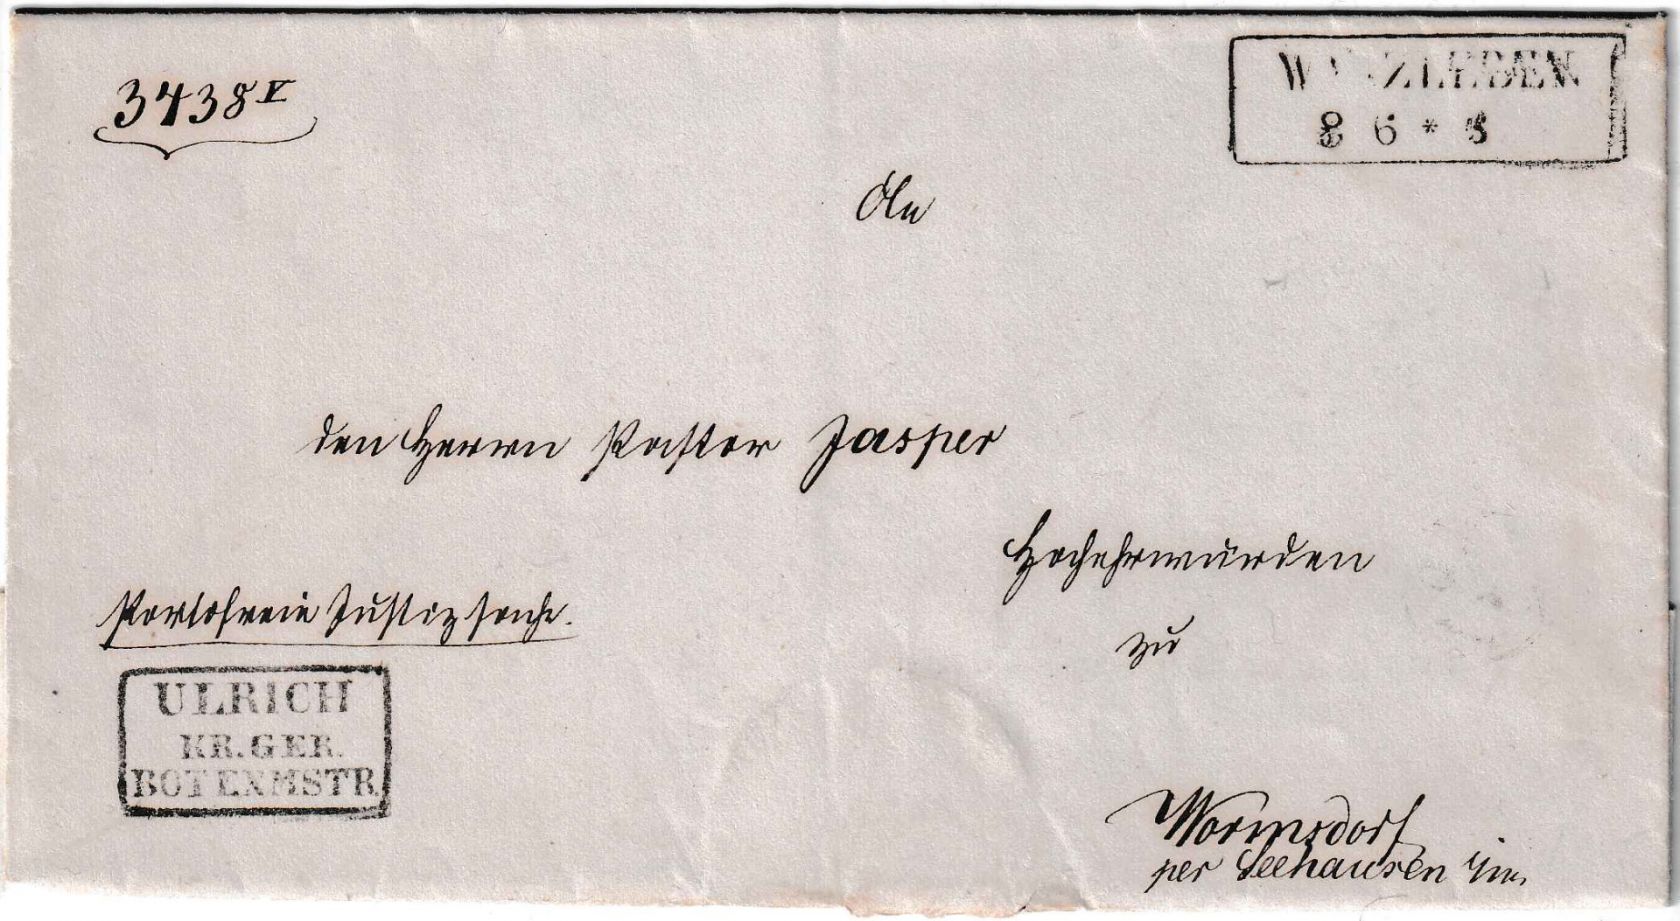 3438 V
WANZLEBEN
8 6 * 5
An
den Herrn Pastor Jasper
Hochehrwürden
zu
Portofreie Justizsache.
ULRICH
KR. GER.
BOTENMSTR.
Wormsdorf
per Seehausen